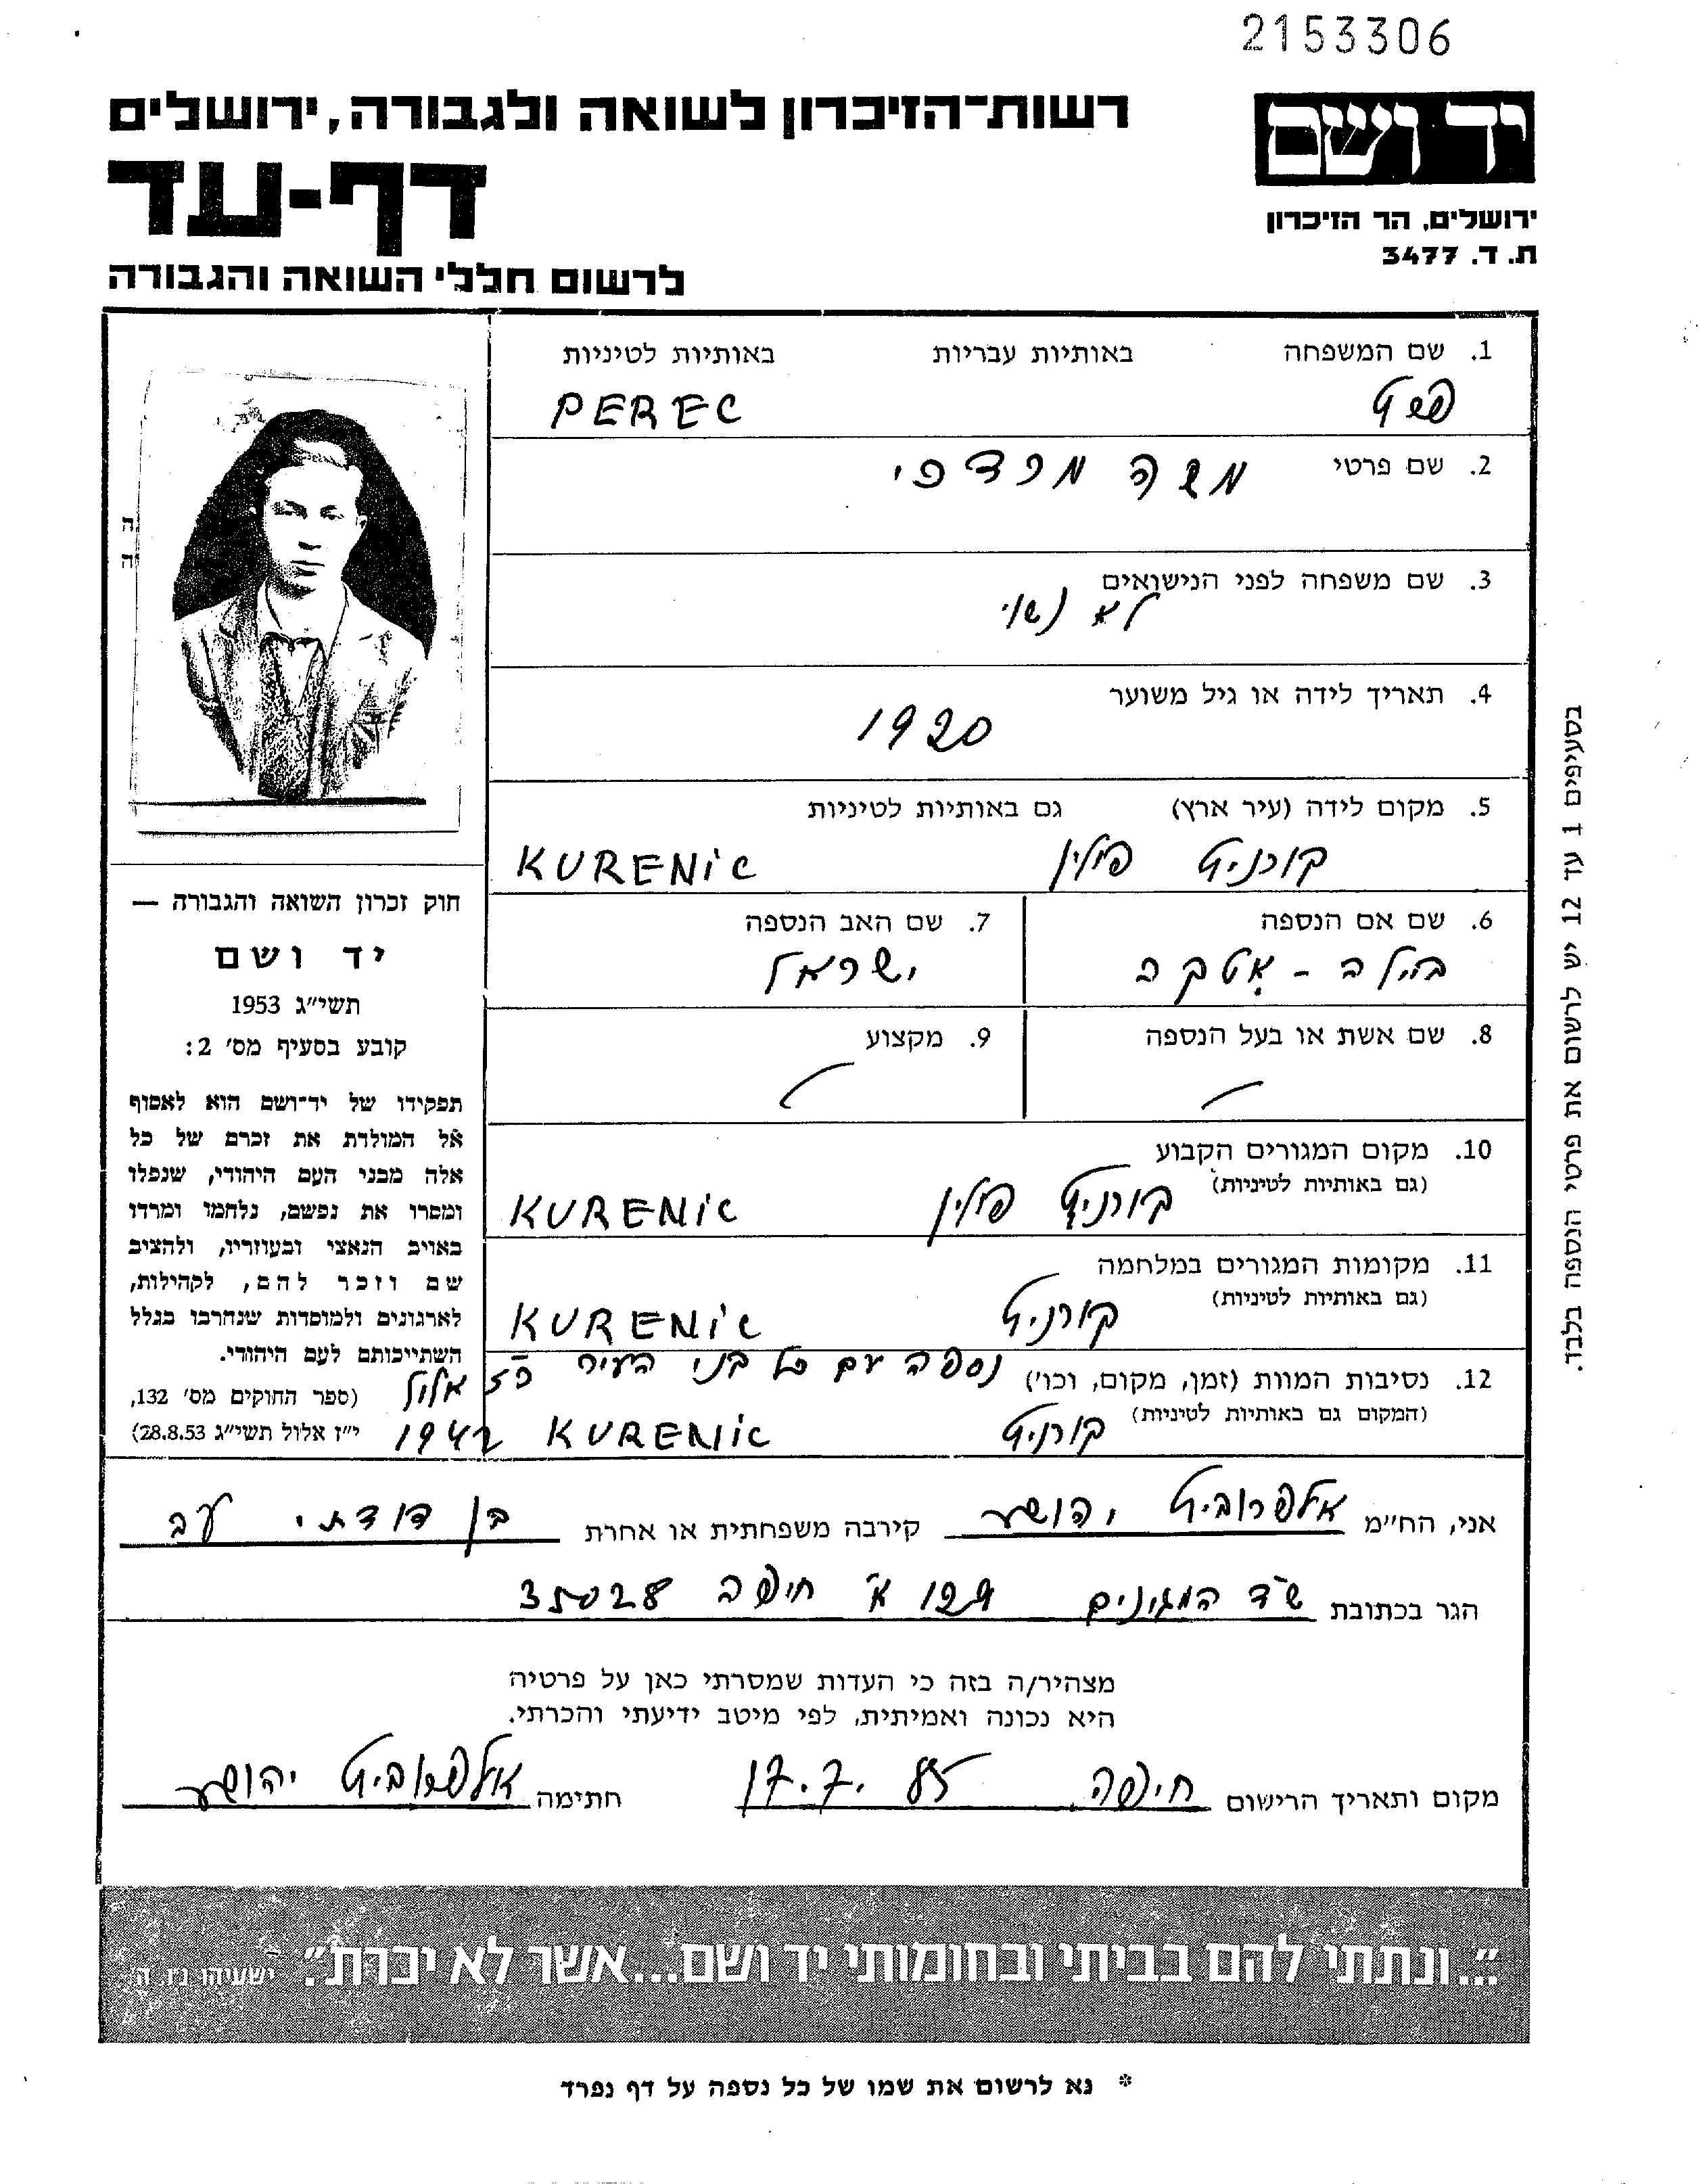 2153306
יד ושם
ירושלים, הר הזיכרון
ת. ד. 3477
רשות-הזיכרון לשואה ולגבורה, ירושלים
דף-עד
לרשום חללי השואה והגבורה
1. שם המשפחה באותיות עבריות באותיות לטיניות
פרץ PEREC
2. שם פרטי משה מרדכי
3. שם משפחה לפני הנישואים
לא נשוי
4. תאריך לידה או גיל משוער
1920
5. מקום לידה (עיר ארץ) גם באותיות לטיניות
קורניץ פולין KURENIC
6. שם אם הנספה
ביילה - אטקה
7. שם האב הנספה
ישראל
8. שם אשת או בעל הנספה
9. מקצוע
10. מקום המגורים הקבוע
(גם באותיות לטיניות)
קורניץ פולין KURENIC
11. מקומות המגורים במלחמה
(גם באותיות לטיניות)
קורניץ KURENIC
12. נסיבות המוות (זמן, מקום, וכו') נספה עם כל בני העיר כז אלול
(המקום גם באותיות לטיניות) קורניץ KURENIC 1942
חוק זכרון השואה והגבורה —
יד ושם
תשי״ג 1953
קובע בסעיף מס' 2:
תפקידו של יד־ושם הוא לאסוף
אל המולדת את זכרם של כל
אלה מבני העם היהודי, שנפלו
ומסרו את נפשם, נלחמו ומרדו
באויב הנאצי ובעוזריו, ולהציב
שם וזכר להם, לקהילות,
לארגונים ולמוסדות שנחרבו בגלל
השתייכותם לעם היהודי.
(ספר החוקים מס' 132,
י״ז אלול תשי״ג 28.8.53)
בסעיפים 1 עד 12 יש לרשום את פרטי הנספה בלבד.
אני, הח״מ אלפרוביץ יהושע קירבה משפחתית או אחרת בן דודתי
הגר בכתובת שד המגינים א׳ חיפה 35028
מצהיר/ה בזה כי העדות שמסרתי כאן על פרטיה
היא נכונה ואמיתית, לפי מיטב ידיעתי והכרתי.
מקום ותאריך הרישום חיפה 17.7.85 חתימה אלפרוביץ יהושע
"...ונתתי להם בביתי ובחומותי יד ושם...אשר לא יכרת". ישעיהו נ״ו, ה׳
* נא לרשום את שמו של כל נספה על דף נפרד